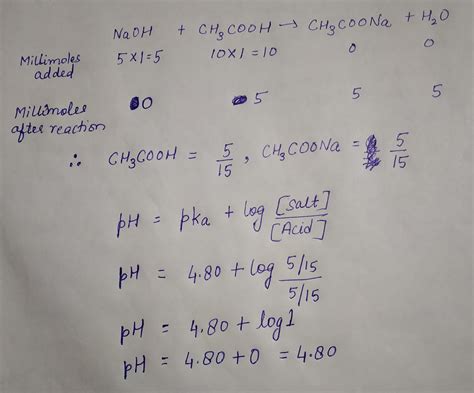 NaOH + CH₃COOH → CH₃COONa + H₂O
Millimoles added 5×1=5 10×1=10 0 0
Millimoles after reaction 0 5 5 5
∴ CH₃COOH = 5/15 , CH₃COONa = 5/15
pH = pka + log [Salt]/[Acid]
pH = 4.80 + log 5/15 / 5/15
pH = 4.80 + log 1
pH = 4.80 + 0 = 4.80